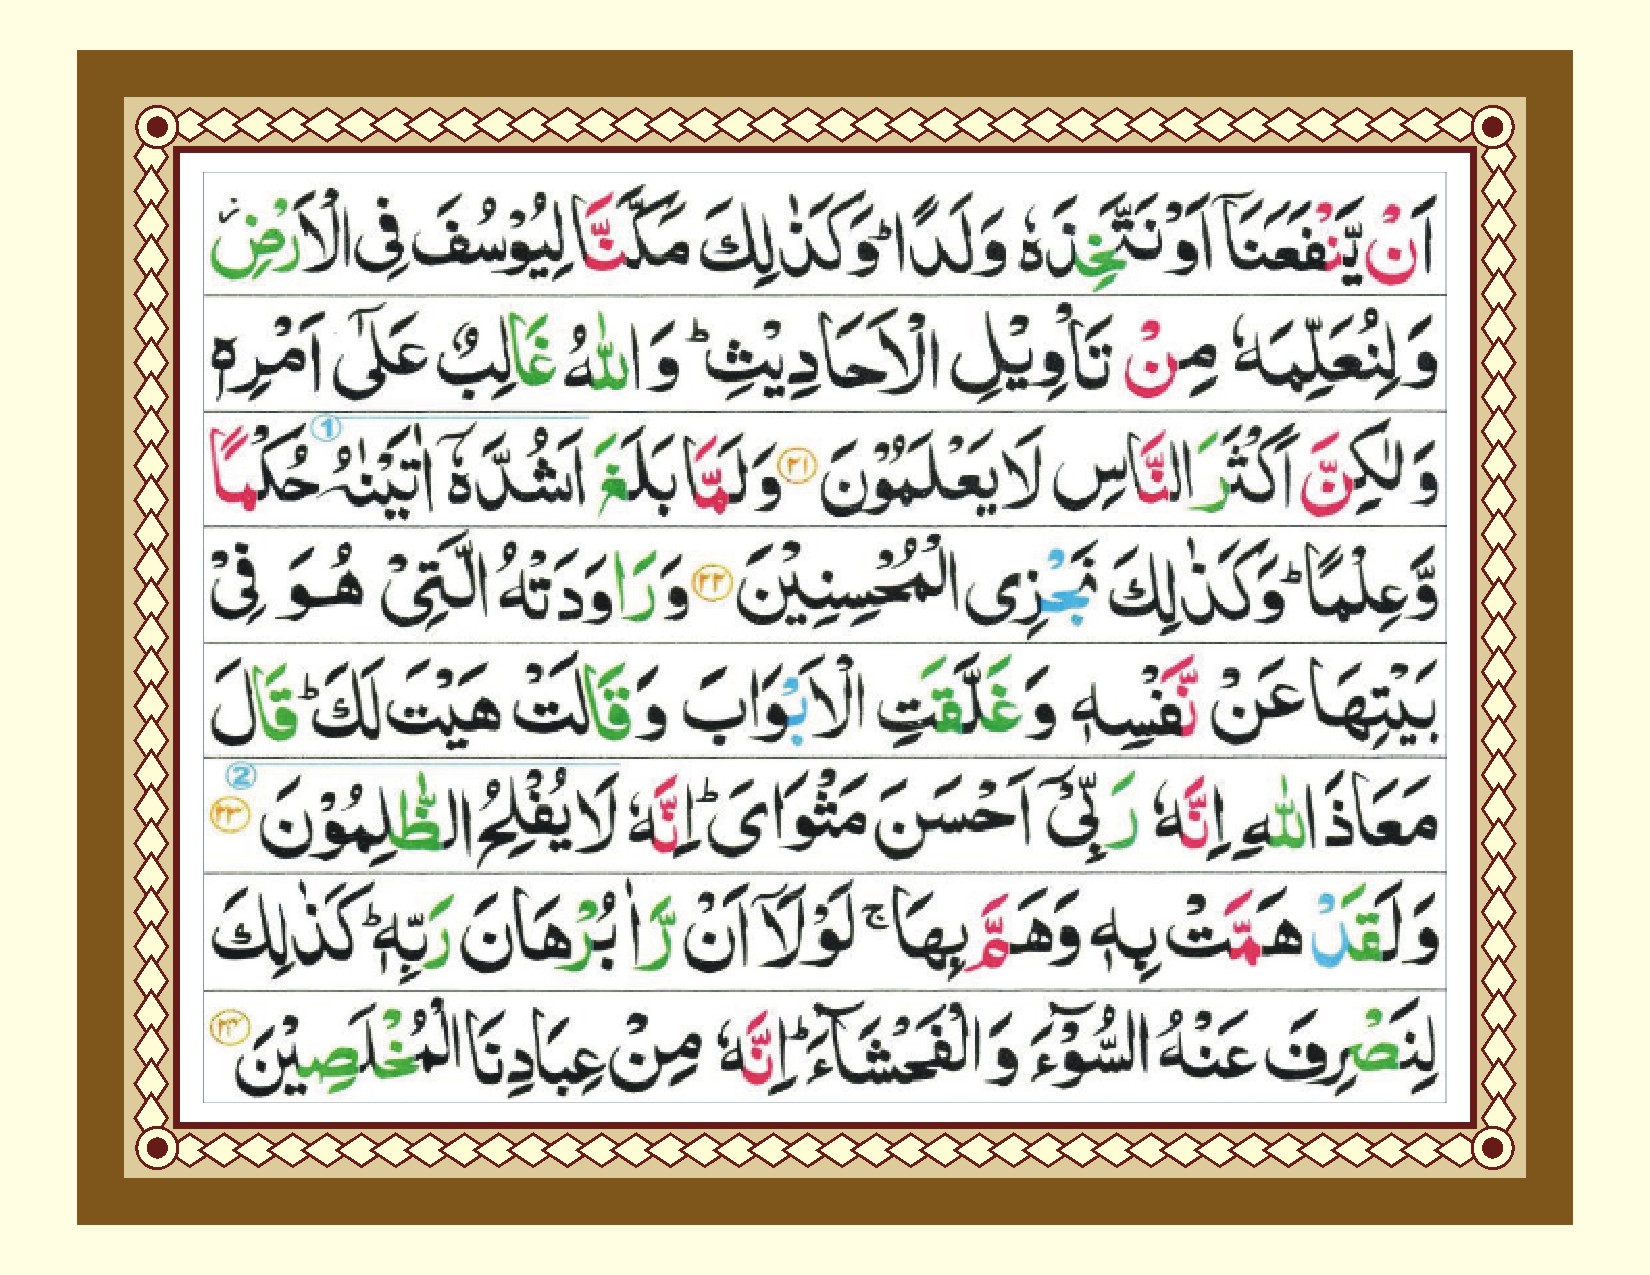 اَنْ يَّنْفَعَنَاۤ اَوْ نَتَّخِذَهٗ وَلَدًا ؕ وَكَذٰلِكَ مَكَّنَّا لِيُوْسُفَ فِى الْاَرْضِ ز
وَلِنُعَلِّمَهٗ مِنْ تَاْوِيْلِ الْاَحَادِيْثِ ؕ وَاللّٰهُ غَالِبٌ عَلٰٓى اَمْرِهٖ
وَلٰكِنَّ اَكْثَرَ النَّاسِ لَا يَعْلَمُوْنَ ٢١ وَلَمَّا بَلَغَ اَشُدَّهٗۤ اٰتَيْنٰهُ حُكْمًا 1
وَّعِلْمًا ؕ وَكَذٰلِكَ نَجْزِى الْمُحْسِنِيْنَ ٢٢ وَرَاوَدَتْهُ الَّتِىْ هُوَ فِىْ
بَيْتِهَا عَنْ نَّفْسِهٖ وَغَلَّقَتِ الْاَبْوَابَ وَقَالَتْ هَيْتَ لَكَ ؕ قَالَ
مَعَاذَ اللّٰهِ اِنَّهٗ رَبِّىْۤ اَحْسَنَ مَثْوَاىَ ؕ اِنَّهٗ لَا يُفْلِحُ الظّٰلِمُوْنَ 2 ٢٣
وَلَقَدْ هَمَّتْ بِهٖ وَهَمَّ بِهَا ۚ لَوْلَاۤ اَنْ رَّاٰ بُرْهَانَ رَبِّهٖ ؕ كَذٰلِكَ
لِنَصْرِفَ عَنْهُ السُّوْٓءَ وَالْفَحْشَآءَ ؕ اِنَّهٗ مِنْ عِبَادِنَا الْمُخْلَصِيْنَ ٢٤